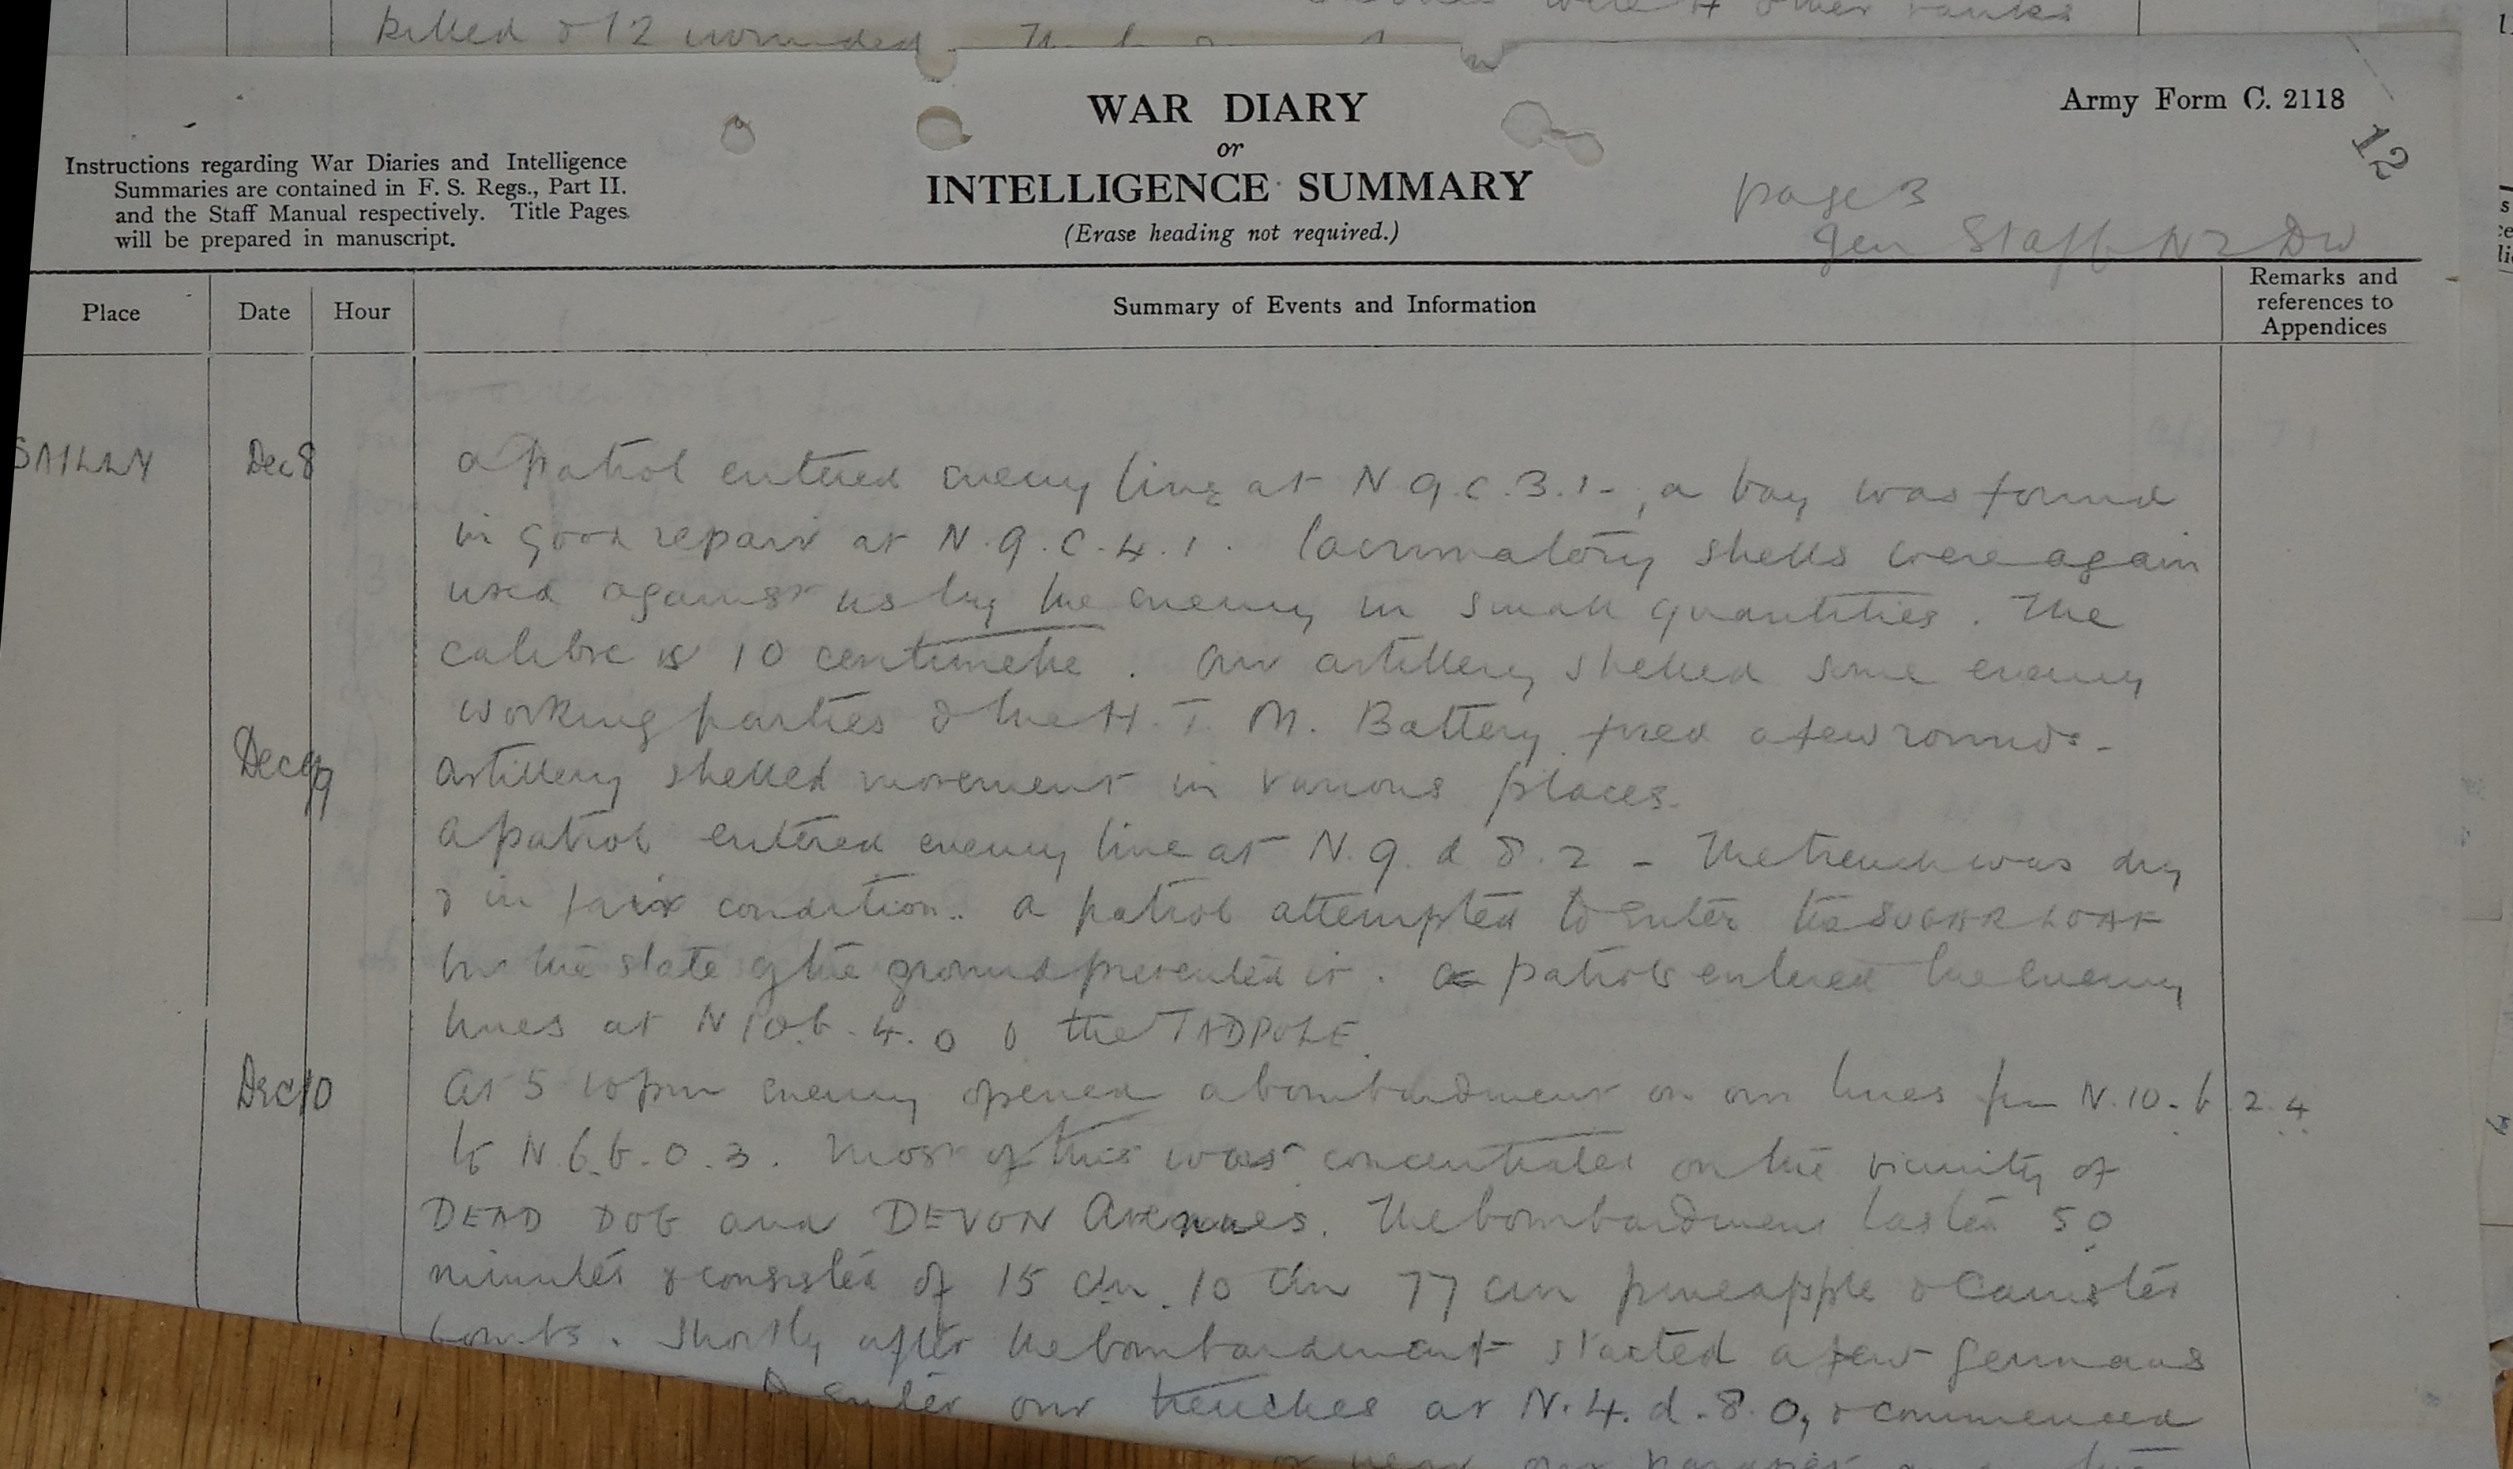 killed & 12 wounded
were 4 other ranks
WAR DIARY
or
INTELLIGENCE SUMMARY
(Erase heading not required.)
Army Form C. 2118
12
Instructions regarding War Diaries and Intelligence
Summaries are contained in F. S. Regs., Part II.
and the Staff Manual respectively. Title Pages
will be prepared in manuscript.
page 3
Gen Staff N Z Div
Place
Date
Hour
Summary of Events and Information
Remarks and
references to
Appendices
SAILLY
Dec 8
a patrol entered enemy line at N.9.c.3.1-, a bay was found
in good repair at N.9.c.4.1. lacrimatory shells were again
used against us by the enemy in small quantities. The
calibre is 10 centimetre. Our artillery shelled some enemy
working parties & the H.T.M. Battery fired a few rounds-
Dec 9
9
Artillery shelled movement in various places.
A patrol entered enemy line at N.9.d 8.2 - The trench was dry
& in fair condition.. a patrol attempted to enter the SUGAR LOAF
but the state of the ground prevented it. patrols entered the enemy
lines at N10.b.4.0 & the TADPOLE.
Dec 10
At 5 10 pm enemy opened a bombardment on our lines from N.10.b.2.4
to N.6.b.0.3. Most of this was concentrated on the vicinity of
DEAD DOG and DEVON Avenues. The bombardment lasted 50
minutes & consisted of 15 cm. 10 cm 77 cm pineapple & Canister
bombs. Shortly after the bombardment started a few Germans
enter our trenches at N.4.d.8.0, & commenced
our parapet